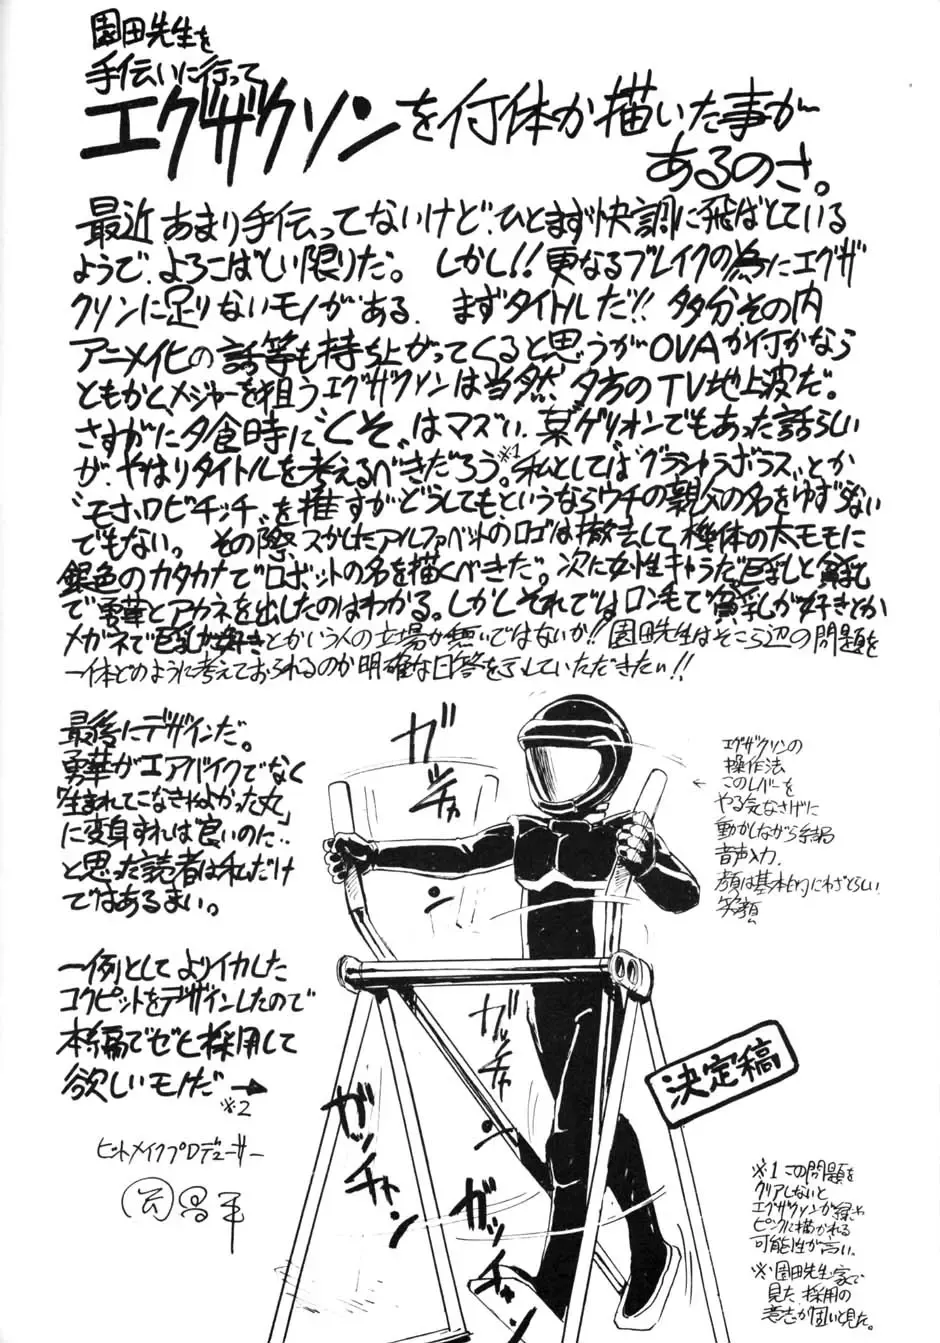 園田先生を
手伝いに行って
エグザクソンを何体か描いた事が
あるのさ。
最近あまり手伝ってないけど、ひとまず快調に飛ばしている
ようで、よろこばしい限りだ。しかし!!更なるブレイクの為にエグザ
クソンに足りないモノがある。まずタイトルだ!!多分その内
アニメイヒの話等も持ち上がってくると思うがOVAか何かなら
ともかく、メジャーを狙うエグザクソンは当然 夕方のTV地上波だ。
さすがに夕食時に〝くそ〟はマズい。某ゲリオンでもあった話らしい
が、やはりタイトルを考えるべきだろう。※1私としては〝グラントラボラス〟とか
〝モホロビチッチ〟を推すがどうしてもというならウチの親父の名をゆずらない
でもない。その際スかしたアルファベットのロゴは撤去して機体の太モモに
銀色のカタカナでロボットの名を描くべきだ。次に女性キャラだ。巨乳と貧乳
で勇華とアカネを出したのはわかる。しかしそれではロン毛で貧乳が好きとか
メガネで巨乳が好きとかいう人の立場が無いではないか!!園田先生はそこら辺の問題を
一体どのように考えておられるのか明確な回答を示していただきたい!!
最後にデザインだ。
勇華がエアバイクでなく
「生まれてこなきゃよかった丸」
に変身すれば良いのに…
と思った読者は私だけ
ではあるまい。
一例として よりイカした
コクピットをデザインしたので
本編でゼヒ採用して
欲しいモノだ→
※2
ヒットメイクプロデューサー
ガチャン
エグザクソンの
操作法
このレバーを
やる気なさげに
動かしながら
音声入力.
顔は基本的にわざとらしい
笑顔
ガッチャン
ガッチャン
決定稿
※1 この問題を
クリアしないと
エグザクソンが緑や
ピンクに描かれる
可能性が高い.
※園田先生家で
見た.採用の
意志が固いと見た。